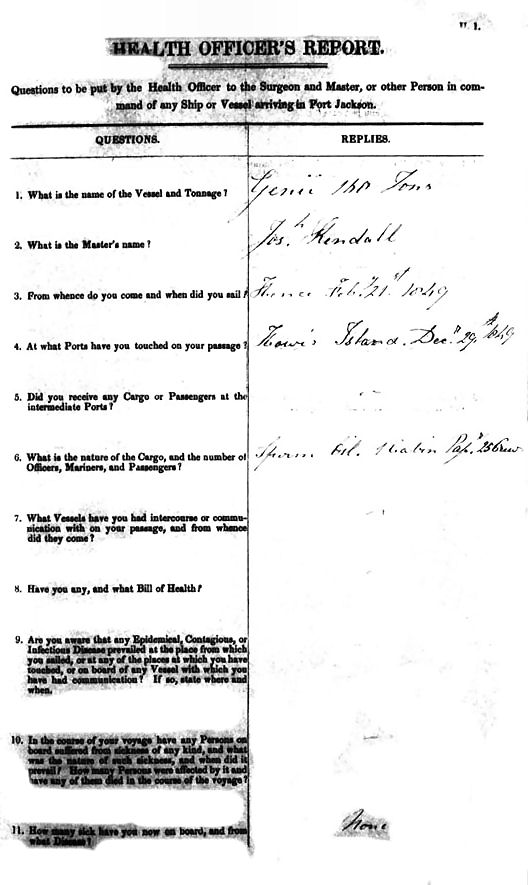 H. 1.
HEALTH OFFICER'S REPORT.
Questions to be put by the Health Officer to the Surgeon and Master, or other Person in com-
mand of any Ship or Vessel arriving in Port Jackson.
QUESTIONS. REPLIES.
1. What is the name of the Vessel and Tonnage? Genii Tons
2. What is the Master's name? Josh. Kendall
3. From whence do you come and when did you sail? Hence Feby 21st 1849
4. At what Ports have you touched on your passage? Howe's Island. Decr 29th 1849
5. Did you receive any Cargo or Passengers at the
intermediate Ports?
6. What is the nature of the Cargo, and the number of Sperm Oil. 25 Crew
Officers, Mariners, and Passengers?
7. What Vessels have you had intercourse or commu-
nication with on your passage, and from whence
did they come?
8. Have you any, and what Bill of Health?
9. Are you aware that any Epidemical, Contagious, or
Infectious Disease prevailed at the place from which
you sailed, or at any of the places at which you have
touched, or on board of any Vessel with which you
have had communication? If so, state where and
when.
10. In the course of your voyage have any Persons on
board suffered from sickness of any kind, and what
was the nature of such sickness, and when did it
prevail? How many Persons were affected by it and
have any of them died in the course of the voyage?
11. How many sick have you now on board, and from None
what Disease?